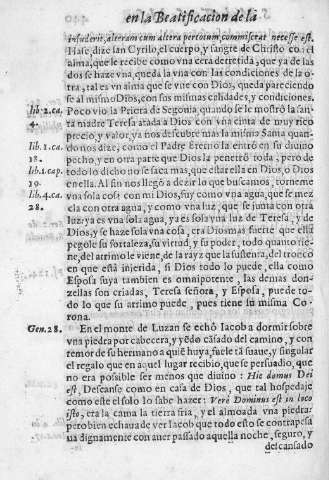 en la Beatificacion de la
infuderit, alteram cum altera per totum commiscat necesse est.
Hase, dize san Cyrilo, el cuerpo, y sangre de Christo con el
alma, que le recibe como vna cera derretida, que ya de las
dos se haze vna, queda la vna con las condiciones de la o-
tra, tal es vn alma que se vne con Dios, queda pareciendo
se al mismo Dios, con sus mismas calidades, y condiciones.
lib. 2. ca. Poco vio la Priora de Segouia quando se le mostrò la san-
4. ta madre Teresa atada a Dios con vna cinta de muy rico
precio, y valor, ya nos descubre mas la mismo Santa quan-
lib. 1. ca. do nos dize, como el Padre Eterno la entrò en su diuino
18. pecho, y en otra parte que Dios la penetrò toda, pero de
lib. 1. cap. todo lo dicho no se saca mas, que estar ella en Dios, o Dios
19. en ella. Al fin nos llegò a dezir lo que buscamos, torneme
lib. 4. ca. vna sola cosa con mi Dios, suy como vna agua, que se mez
28. cla con otra agua, y como vna luz, que se junta con otra
luz: ya es vna sola agua, ya es sola vna luz de Teresa, y de
Dios, y se haze sola vna cosa, era Dios mas fuerte que ella
pegole su fortaleza, su virtud, y su poder, todo quanto tie-
ne, del arrimo le viene, de la rayz que la sustenta, del tronco
en que està injerida, si Dios todo lo puede, ella como
Esposa suya tambien es omnipotente, las demas don-
zellas son criadas, Teresa señora, y Esposa, puede to-
do lo que su arrimo puede, pues tiene su misma Co-
rona.
Gen. 28. En el monte de Luzan se echò Iacob a dormir sobre
vna piedra por cabecera, y yẽdo cãsado del camino, y con
temor de su hermano a quiẽ huya, fue le tã suaue, y singular
el regalo que en aquel lugar recibio, que se persuadio, que
no era possible ser menos que diuino: Hic domus Dei
est, Descanso como en casa de Dios, que tal hospedaje
como este el solo lo sabe hazer: Verè Dominus est in loco
isto, era la cama la tierra fria, y el almoada vna piedra:
pero bien echaua de ver Iacob que todo esto se contrapesa
ua dignamente con auer passado aquella noche, seguro, y
descansado